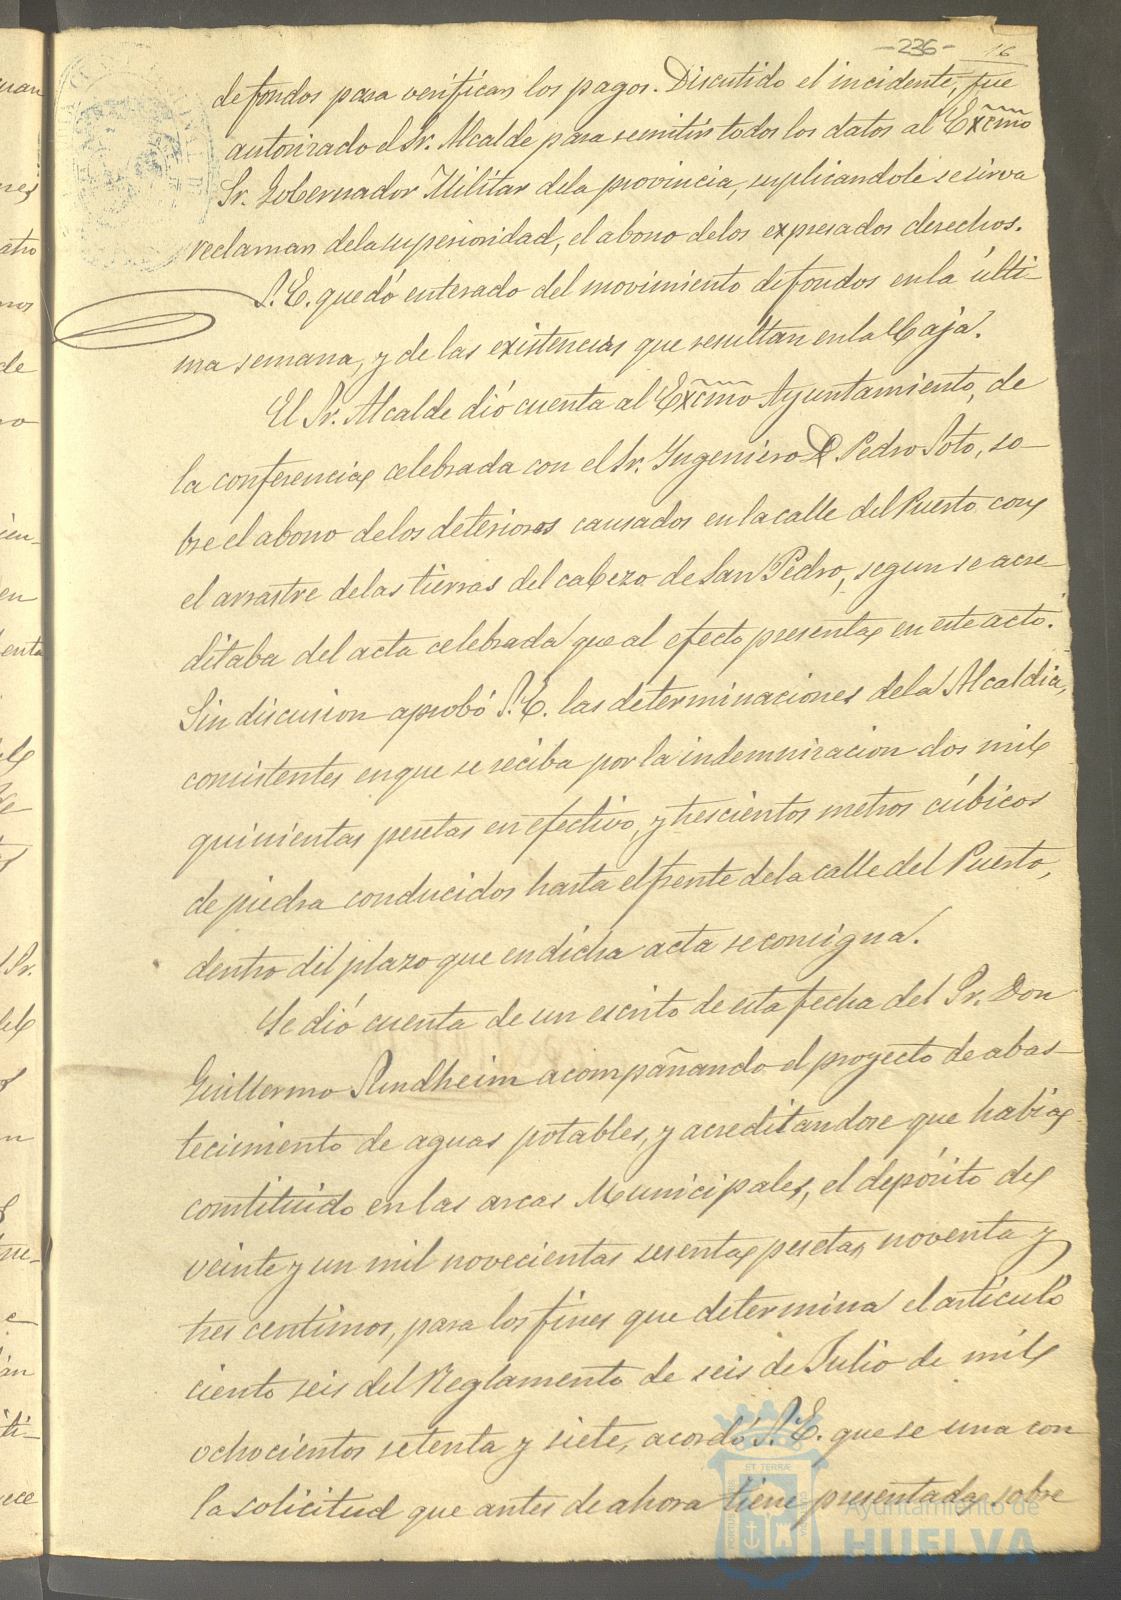 -236- 16
de fondos para verificar los pagos. Discutido el incidente, fue
autorizado el Sr. Alcalde para remitir todos los datos al Excmo
Sr. Gobernador Militar dela provincia, suplicandole se sirva
reclamar dela superioridad, el abono delos expresados derechos.
S.E. quedó enterado del movimiento de fondos en la últi-
ma semana, y de las existencias que resultan en la Caja.
El Sr. Alcalde dió cuenta al Excmo Ayuntamiento, de
la conferencia celebrada con el Sr. Ingeniero D. Pedro Soto, so-
bre el abono delos deterioros causados en la calle del Puerto con
el arrastre delas tierras del cabezo de San Pedro, segun se acre-
ditaba del acta celebrada que al efecto presenta en este acto.
Sin discusion aprobó S.E. las determinaciones dela Alcaldia,
consistentes en que se reciba por la indemnizacion dos mil
quinientas pesetas en efectivo, y trescientos metros cúbicos
de piedra conducidos hasta el frente dela calle del Puerto,
dentro del plazo que en dicha acta se consigna.
Se dió cuenta de un escrito de esta fecha del Sr. Don
Guillermo Sundheim acompañando el proyecto de abas-
tecimiento de aguas potables, y acreditandose que habia
constituido en las arcas Municipales, el depósito de
veinte y un mil novecientas sesenta pesetas noventa y
tres centimos, para los fines que determina el artículo
ciento seis del Reglamento de seis de Julio de mil
ochocientos setenta y siete, acordó S.E. que se una con
la solicitud que antes de ahora tiene presentada sobre
Ayuntamiento de
HUELVA